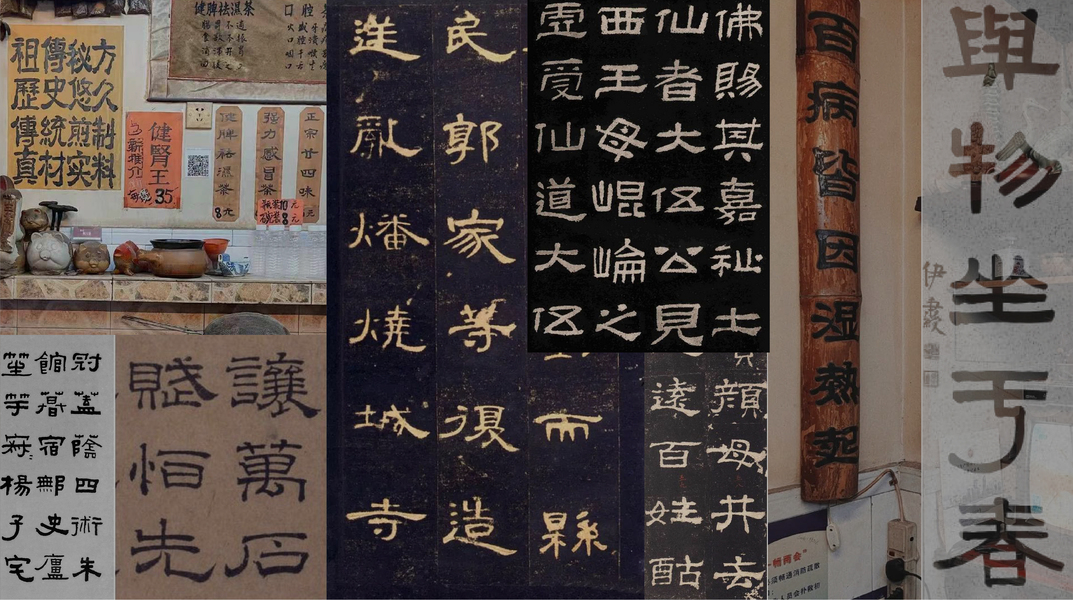 祖傳秘方
歷史悠久
傳統煎制
真材实料
健脾祛湿茶
口腔
健腎王
新推介
35
健脾祛濕茶
8元
强力感冒茶
正宗廿四味
冠蓋蔭四術朱
宿鄦史廬
笙竽寂楊子宅
讓萬石
賦恒先
而縣
民郭家等復造
逆亂燔燒城寺
佛賜其嘉祉士
仙者大伍公見
西王母崐崘之
虛受仙道大伍
顏母井去
遠百姓酤
百病皆因湿熱起
與物坐于春
伊秉綬